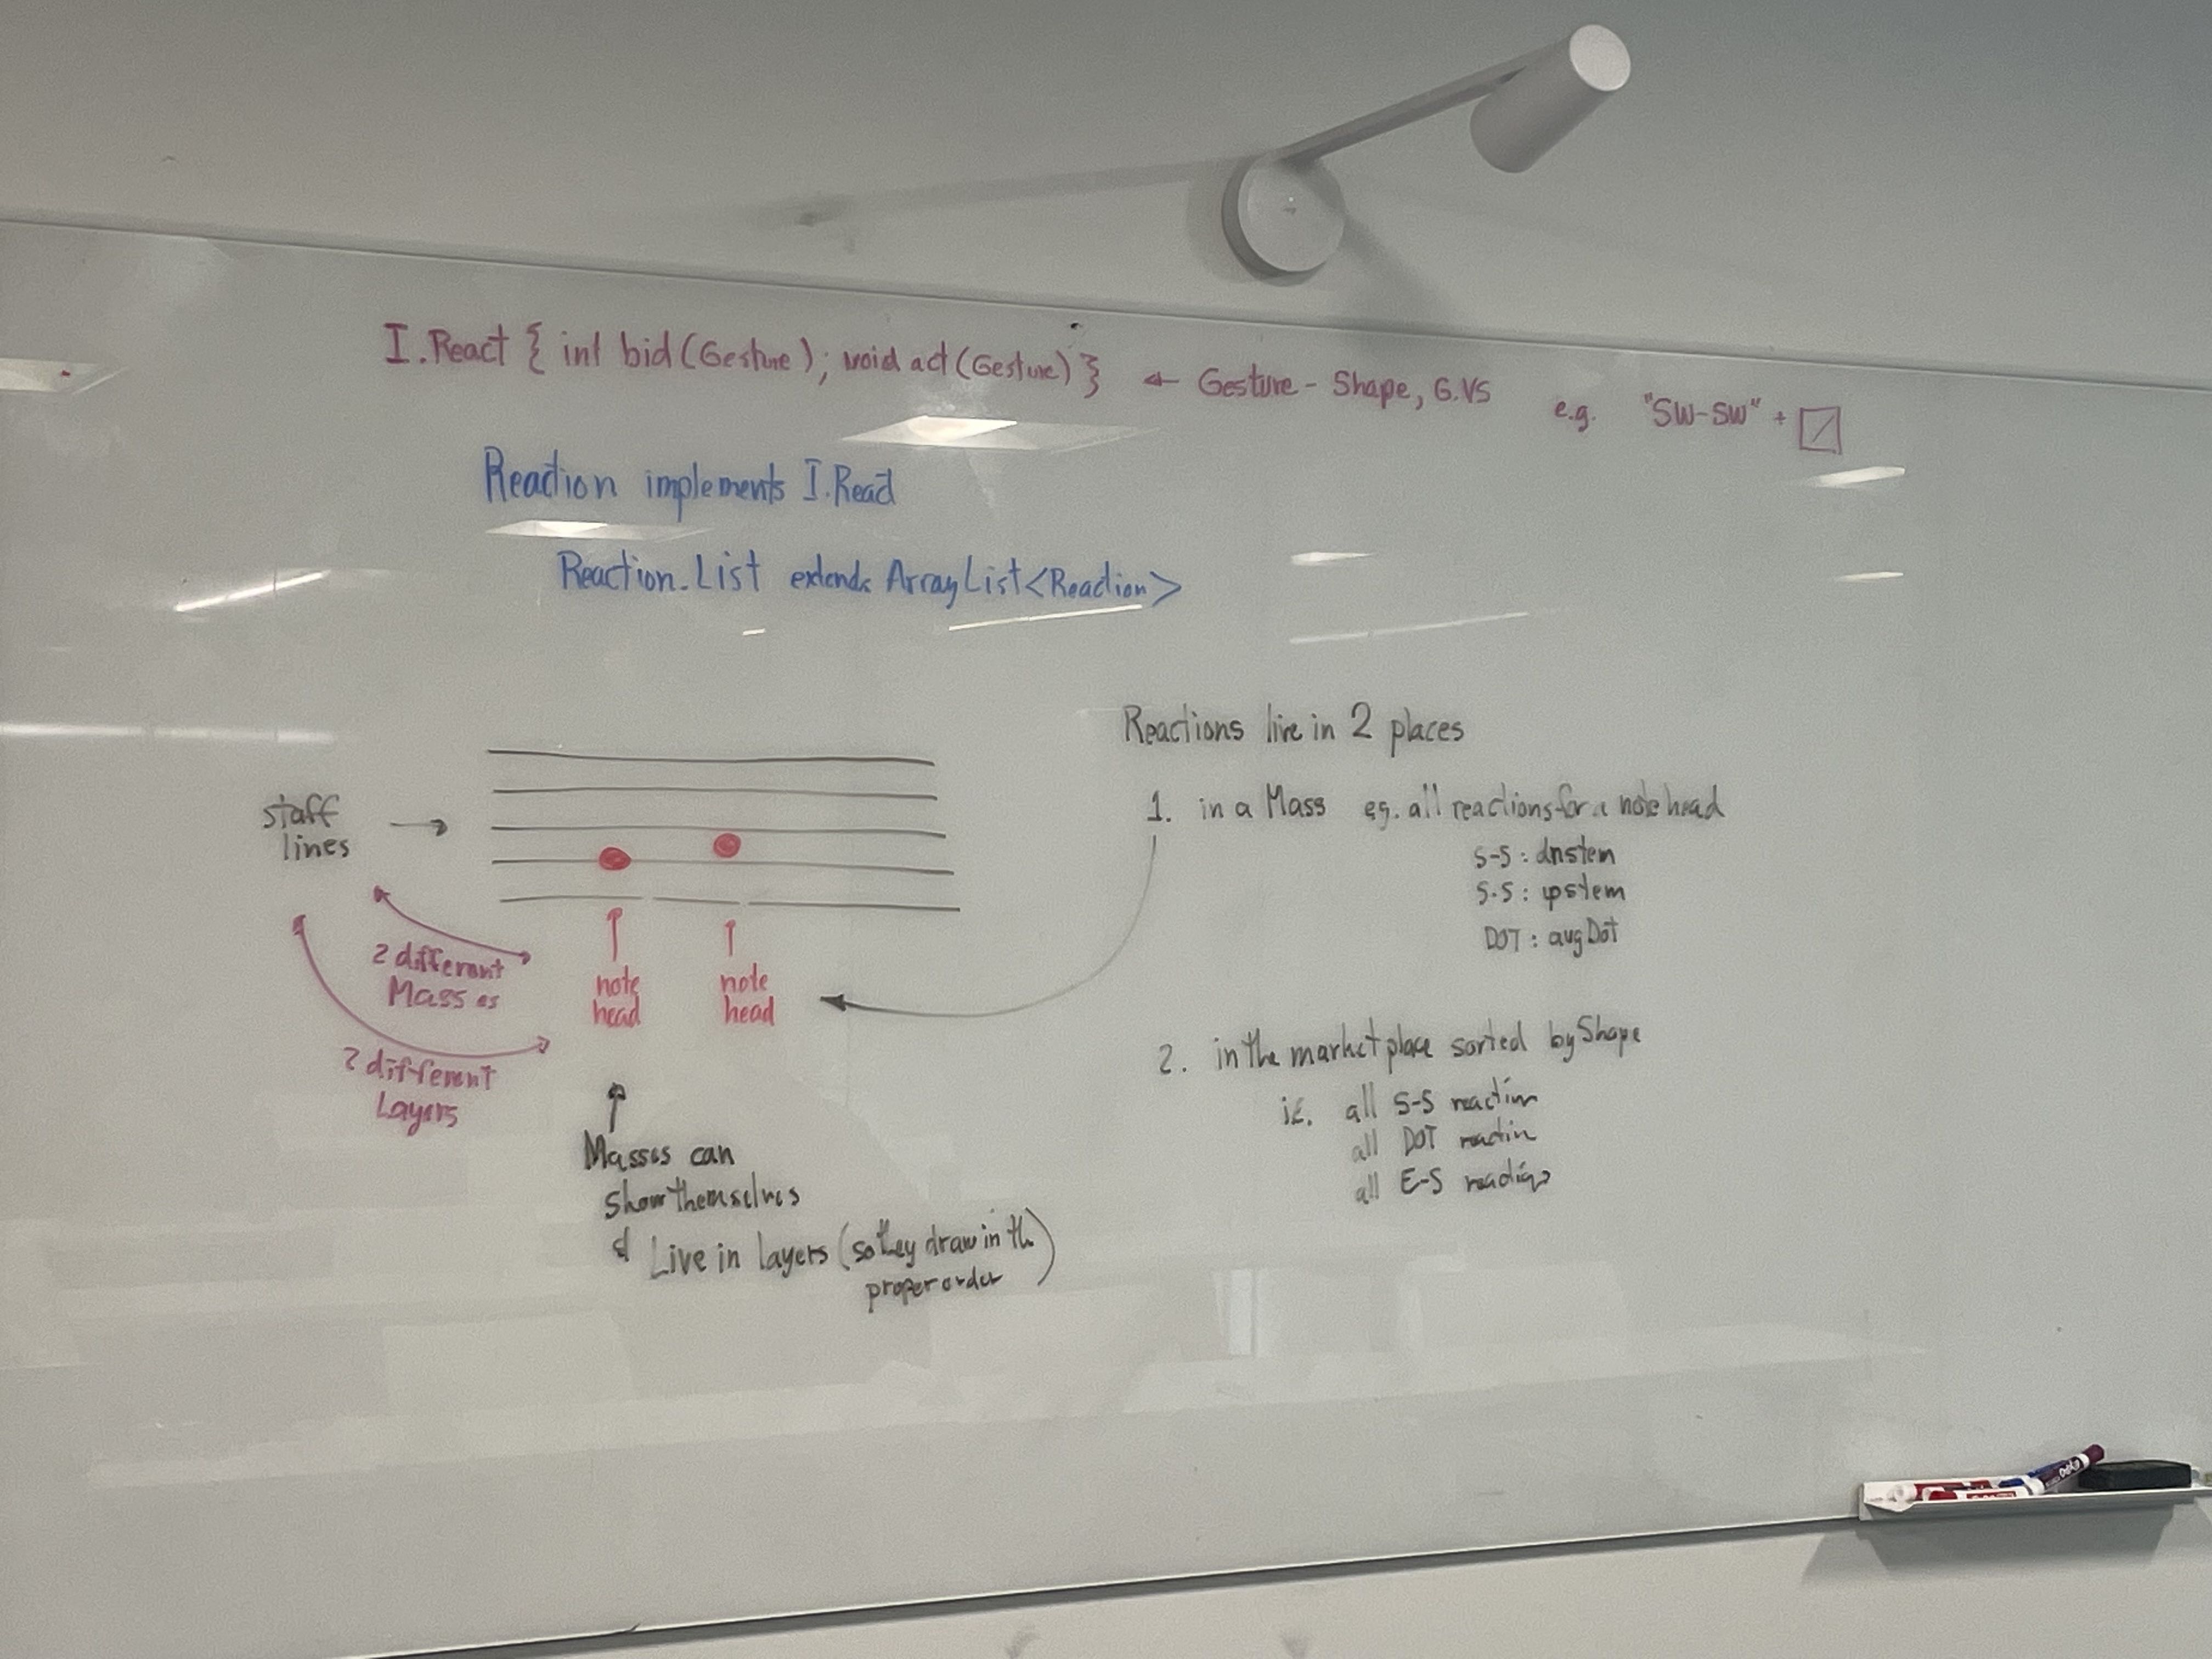 I.React { int bid(Gesture); void act(Gesture) } ← Gesture - Shape, G.VS e.g. "SW-SW" +
Reaction implements I.React
Reaction.List extends ArrayList<Reaction>
staff
lines
2 different
Masses
2 different
Layers
note
head
note
head
Masses can
Show themselves
& Live in layers (so they draw in th
proper order)
Reactions live in 2 places
1. in a Mass eg. all reactions for a note head
S-S : dnstem
S-S : upstem
DOT : augDot
2. in the market place sorted by Shape
ie. all S-S reaction
all DOT reaction
all E-S reactions